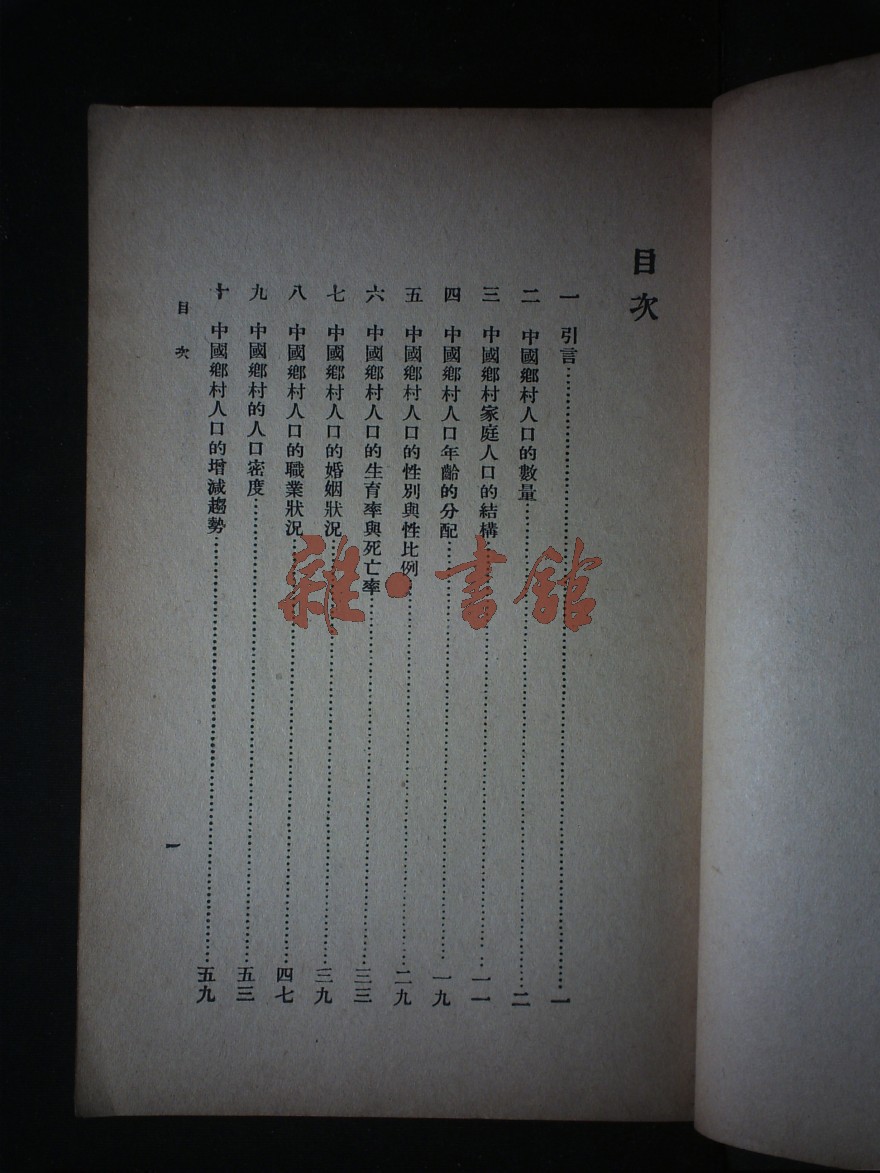 目次
一 引言…………一
二 中國鄉村人口的數量…………二
三 中國鄉村家庭人口的結構…………一一
四 中國鄉村人口年齡的分配…………一九
五 中國鄉村人口的性別與性比例…………二九
六 中國鄉村人口的生育率與死亡率…………三三
七 中國鄉村人口的婚姻狀況…………三九
八 中國鄉村人口的職業狀況…………四七
九 中國鄉村的人口密度…………五三
十 中國鄉村人口的增減趨勢…………五九
目次
一
雜·書館